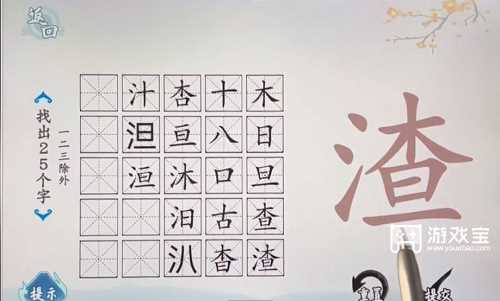 返回
找出25个字
一二三除外
汁 杏 十 木
泹 亘 八 日
洹 沐 口 旦
汨 古 查
汃 杳 渣
渣
游戏宝
www.youxibao.com
提示
提交